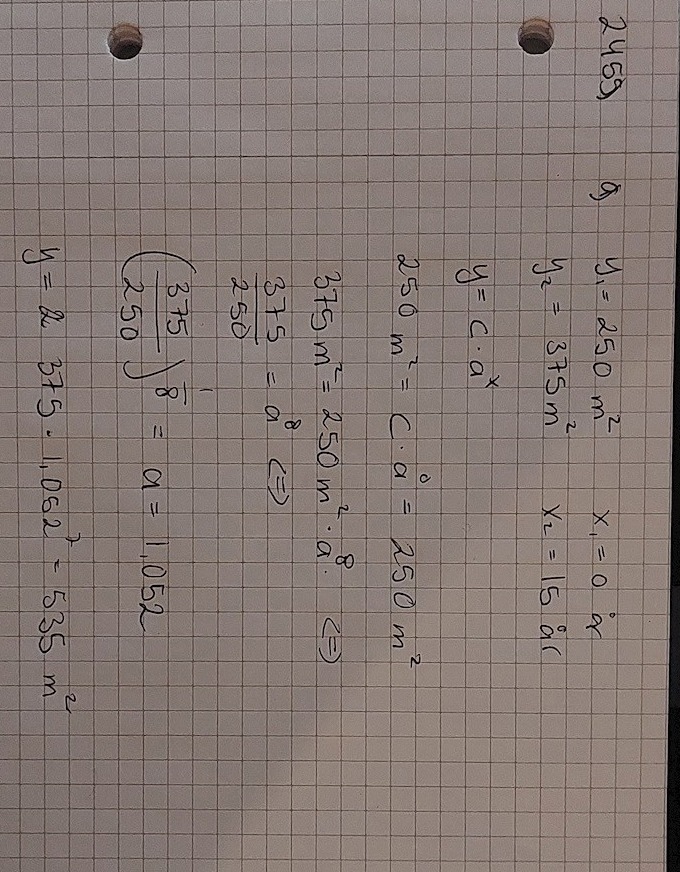 2459 a) y₁ = 250 m² x₁ = 0 år
y₂ = 375 m² x₂ = 15 år
y = C · aˣ
250 m² = C · a⁰ = 250 m²
375 m² = 250 m² · a⁸. <=>
375/250 = a⁸ <=>
(375/250)^(1/8) = a = 1,052
y = 375 · 1,052⁷ = 535 m²